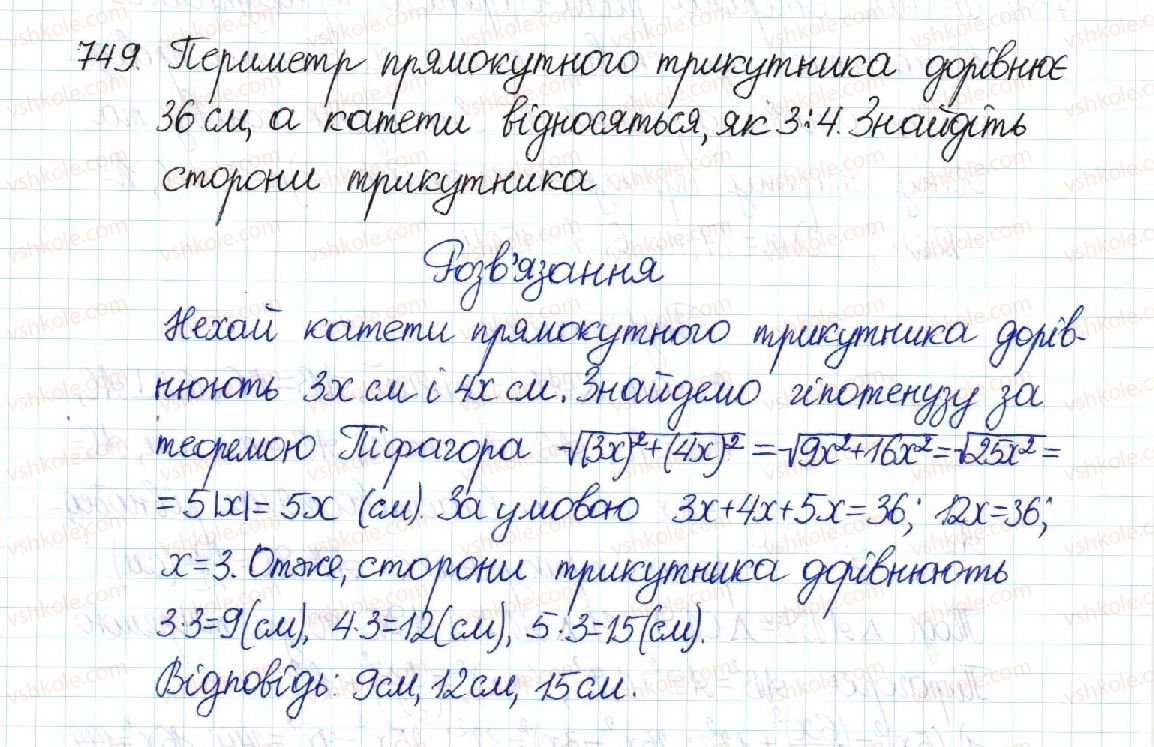 749. Периметр прямокутного трикутника дорівнює
36 см, а катети відносяться, як 3:4. Знайдіть
сторони трикутника
Розв'язання
Нехай катети прямокутного трикутника дорів-
нюють 3x см і 4x см. Знайдемо гіпотенузу за
теоремою Піфагора √(3x)²+(4x)² = √9x²+16x² = √25x² =
= 5|x| = 5x (см). За умовою 3x+4x+5x=36; 12x=36;
x=3. Отже, сторони трикутника дорівнюють
3·3=9(см), 4·3=12(см), 5·3=15(см).
Відповідь: 9см, 12см, 15см.